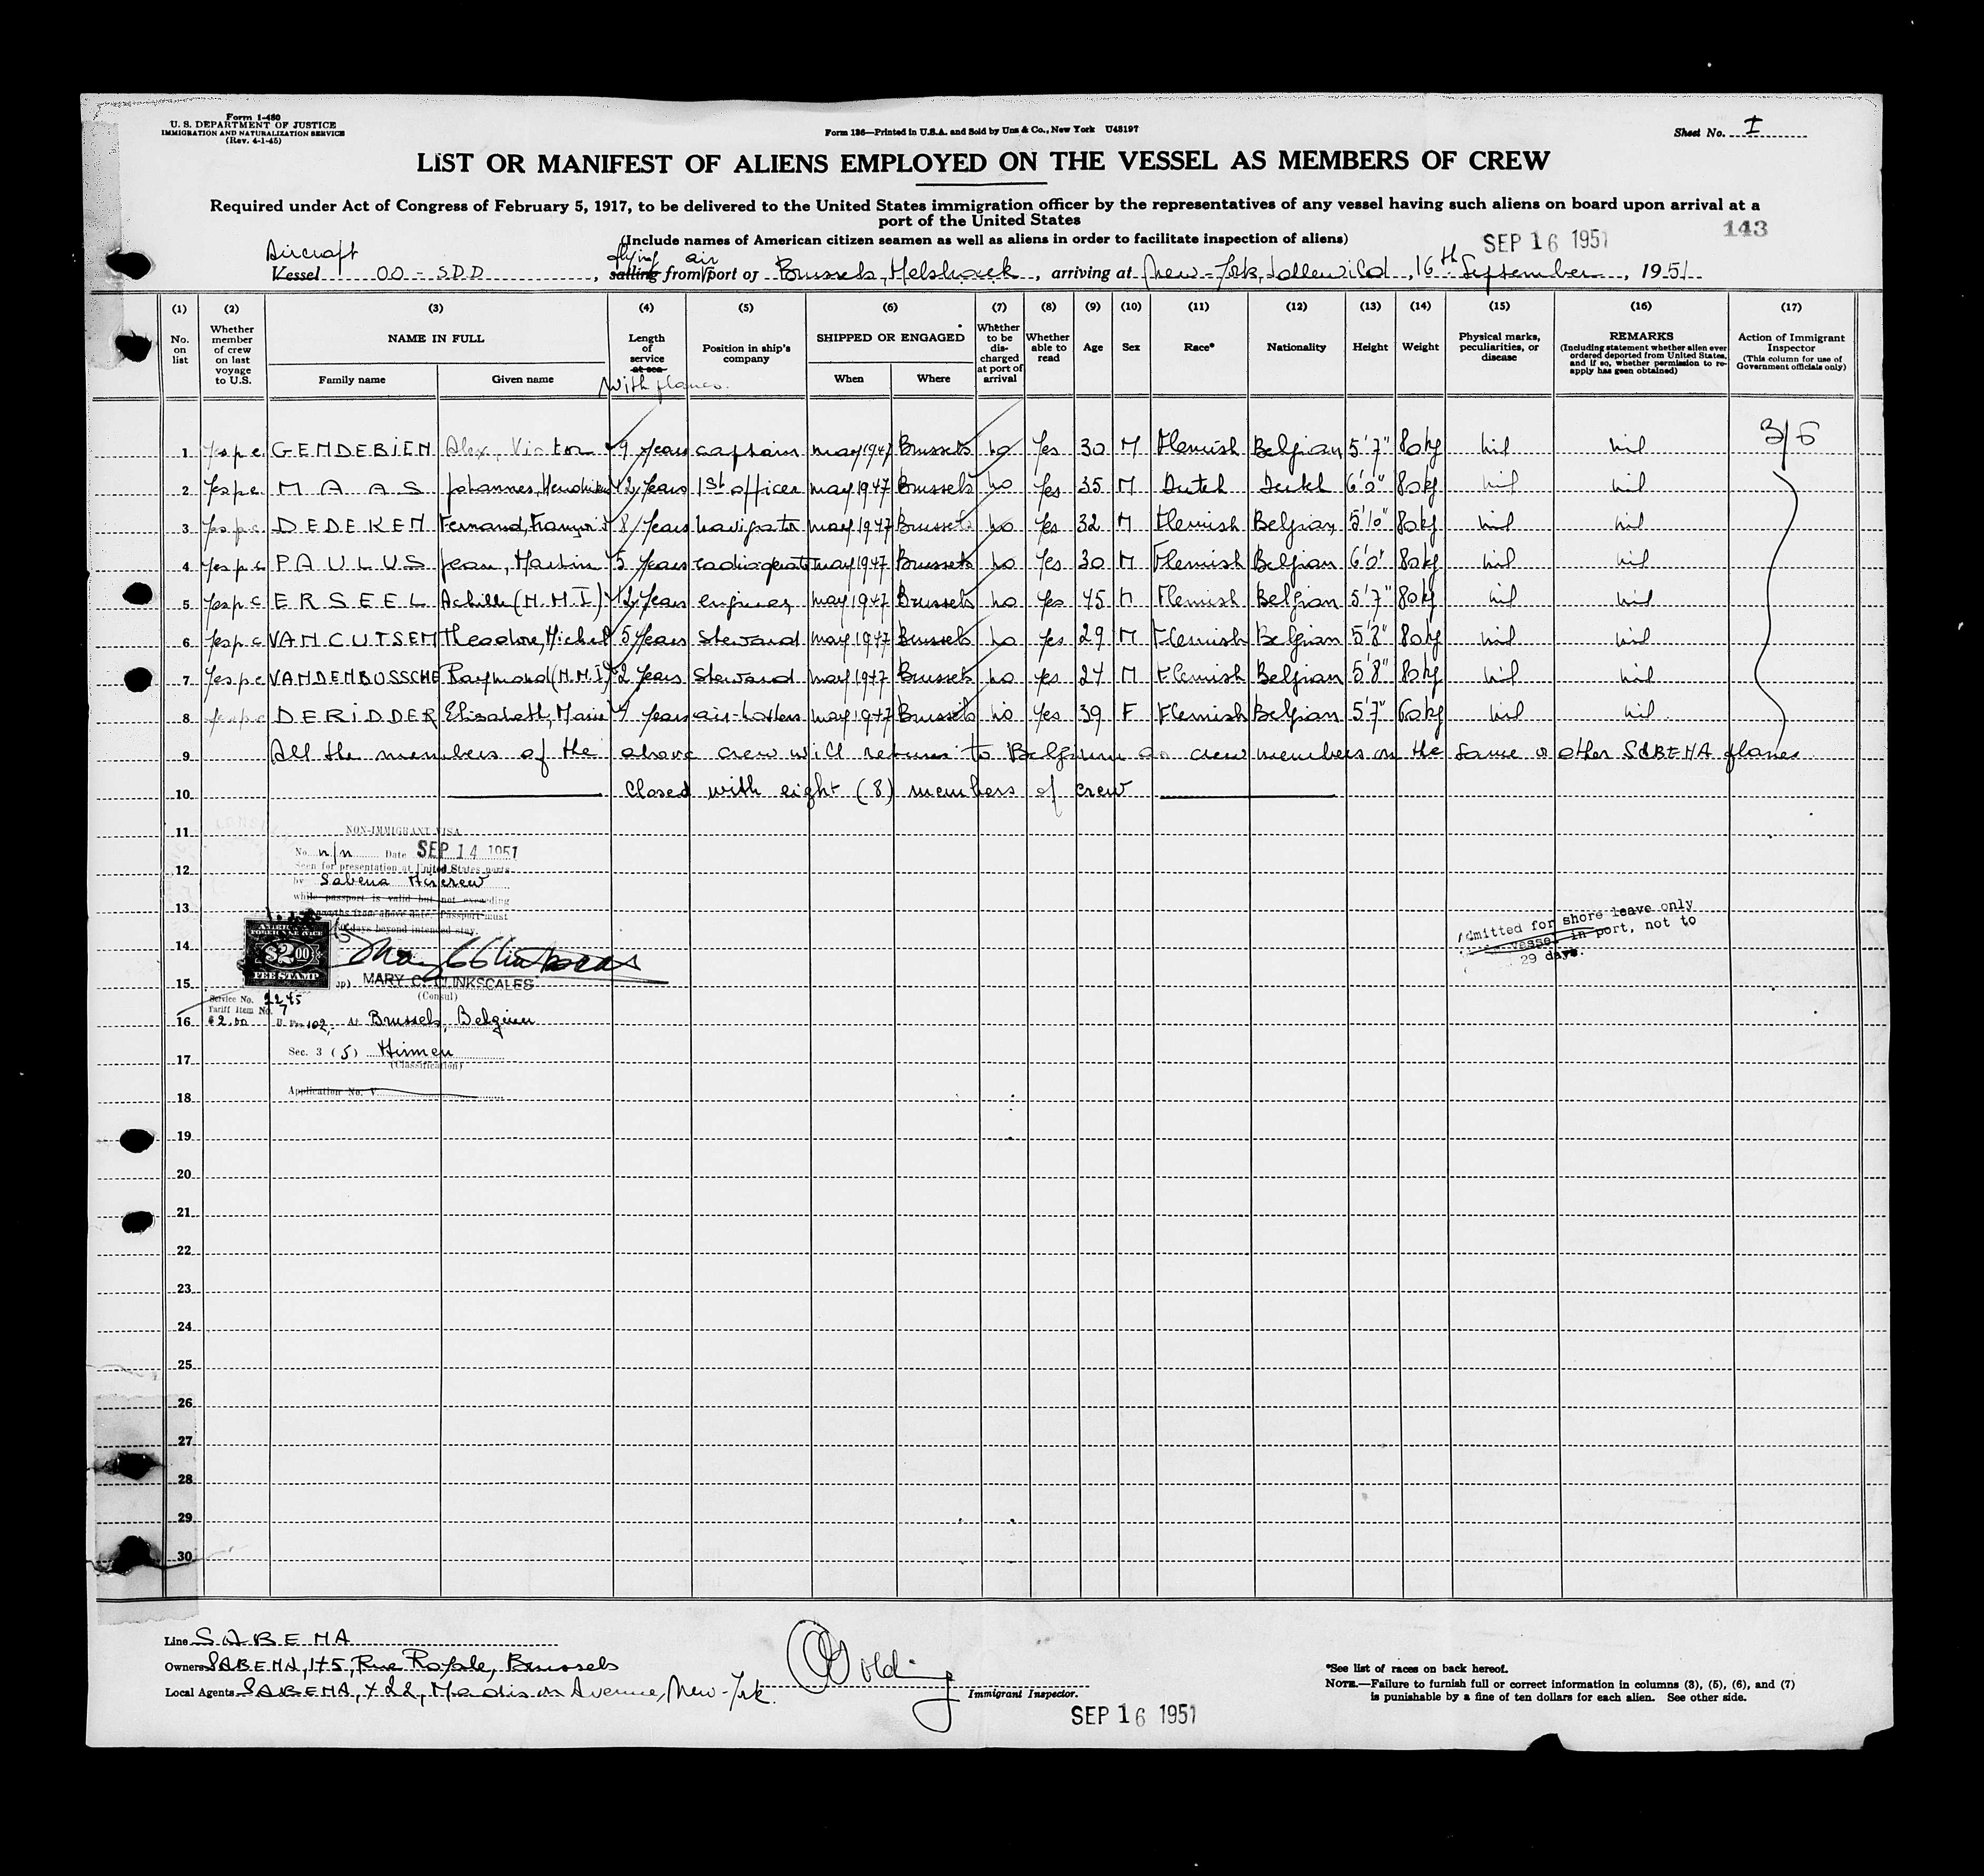 Form I-480
U. S. DEPARTMENT OF JUSTICE
IMMIGRATION AND NATURALIZATION SERVICE
(Rev. 4-1-45)
Form 136—Printed in U.S.A. and Sold by Unz & Co., New York U43197
Sheet No. I
LIST OR MANIFEST OF ALIENS EMPLOYED ON THE VESSEL AS MEMBERS OF CREW
Required under Act of Congress of February 5, 1917, to be delivered to the United States immigration officer by the representatives of any vessel having such aliens on board upon arrival at a
port of the United States
143
(Include names of American citizen seamen as well as aliens in order to facilitate inspection of aliens)
SEP 16 1951
Aircraft flying air
Vessel OO-SDD, sailing from port of Brussels, Melsbroek, arriving at New-York, Idlewild, 16th September, 1951
(1) (2) (3) (4) (5) (6) (7) (8) (9) (10) (11) (12) (13) (14) (15) (16) (17)
No. on list
Whether member of crew on last voyage to U.S.
NAME IN FULL
Family name Given name
Length of service at sea
with planes.
Position in ship's company
SHIPPED OR ENGAGED
When Where
Whether to be discharged at port of arrival
Whether able to read
Age
Sex
Race*
Nationality
Height
Weight
Physical marks, peculiarities, or disease
REMARKS
(Including statement whether alien ever ordered deported from United States, and if so, whether permission to reapply has geen obtained)
Action of Immigrant Inspector
(This column for use of Government officials only)
1 Yes p c GENDEBIEN Alex, Victor 9 Years captain may 1947 Brussels no Yes 30 M Flemish Belgian 5'7" 80kg nil nil 3/5
2 Yes p c MAAS Johannes, Hendrikus 12 Years 1st officer may 1947 Brussels no Yes 35 M Dutch Dutch 6'0" 80kg nil nil
3 Yes p c DEDEKEN Fernand, François 8 Years navigator may 1947 Brussels no Yes 32 M Flemish Belgian 5'10" 80kg nil nil
4 Yes p c PAULUS Jean, Martin 5 Years radiooperat may 1947 Brussels no Yes 30 M Flemish Belgian 6'0" 80kg nil nil
5 Yes p c ERSEEL Achille (N.M.I) 12 Years engineer may 1947 Brussels no Yes 45 M Flemish Belgian 5'7" 80kg nil nil
6 Yes p c VANCUTSEM Theodore, Michel 5 Years Steward may 1947 Brussels no Yes 29 M Flemish Belgian 5'8" 80kg nil nil
7 Yes p c VANDENBUSSCHE Raymond (N.M.I) 2 Years Steward may 1947 Brussels no Yes 24 M Flemish Belgian 5'8" 80kg nil nil
8 Yes p c DERIDDER Elisabeth, Marie 4 Years air-hostess may 1947 Brussels no Yes 39 F Flemish Belgian 5'7" 60kg nil nil
9 All the members of the above crew will return to Belgium as crew members on the same or other SABENA planes
10 Closed with eight (8) members of crew
11
NON-IMMIGRANT VISA
No. n/n Date SEP 14 1951
Seen for presentation at United States ports
12
by Sabena Aircrew
while passport is valid but not exceeding
13
months from above date. Passport must
days beyond intended stay.
14
AMERICAN
FOREIGN SERVICE
$2.00
FEE STAMP
15
MARY C. CLINKSCALES
(Consul)
Service No. 2245
Tariff Item No. 7
16
$2.00 102. At Brussels, Belgium
17
Sec. 3 (5) Airmen
(Classification)
Application No. V
18
Admitted for shore leave only
vessel in port, not to
29 days.
19
20
21
22
23
24
25
26
27
28
29
30
Line SABENA
Owners SABENA, 145, Rue Royale, Brussels
Local Agents SABENA, 422, Madison Avenue, New-York.
Immigrant Inspector.
SEP 16 1951
*See list of races on back hereof.
NOTE.—Failure to furnish full or correct information in columns (3), (5), (6), and (7)
is punishable by a fine of ten dollars for each alien. See other side.